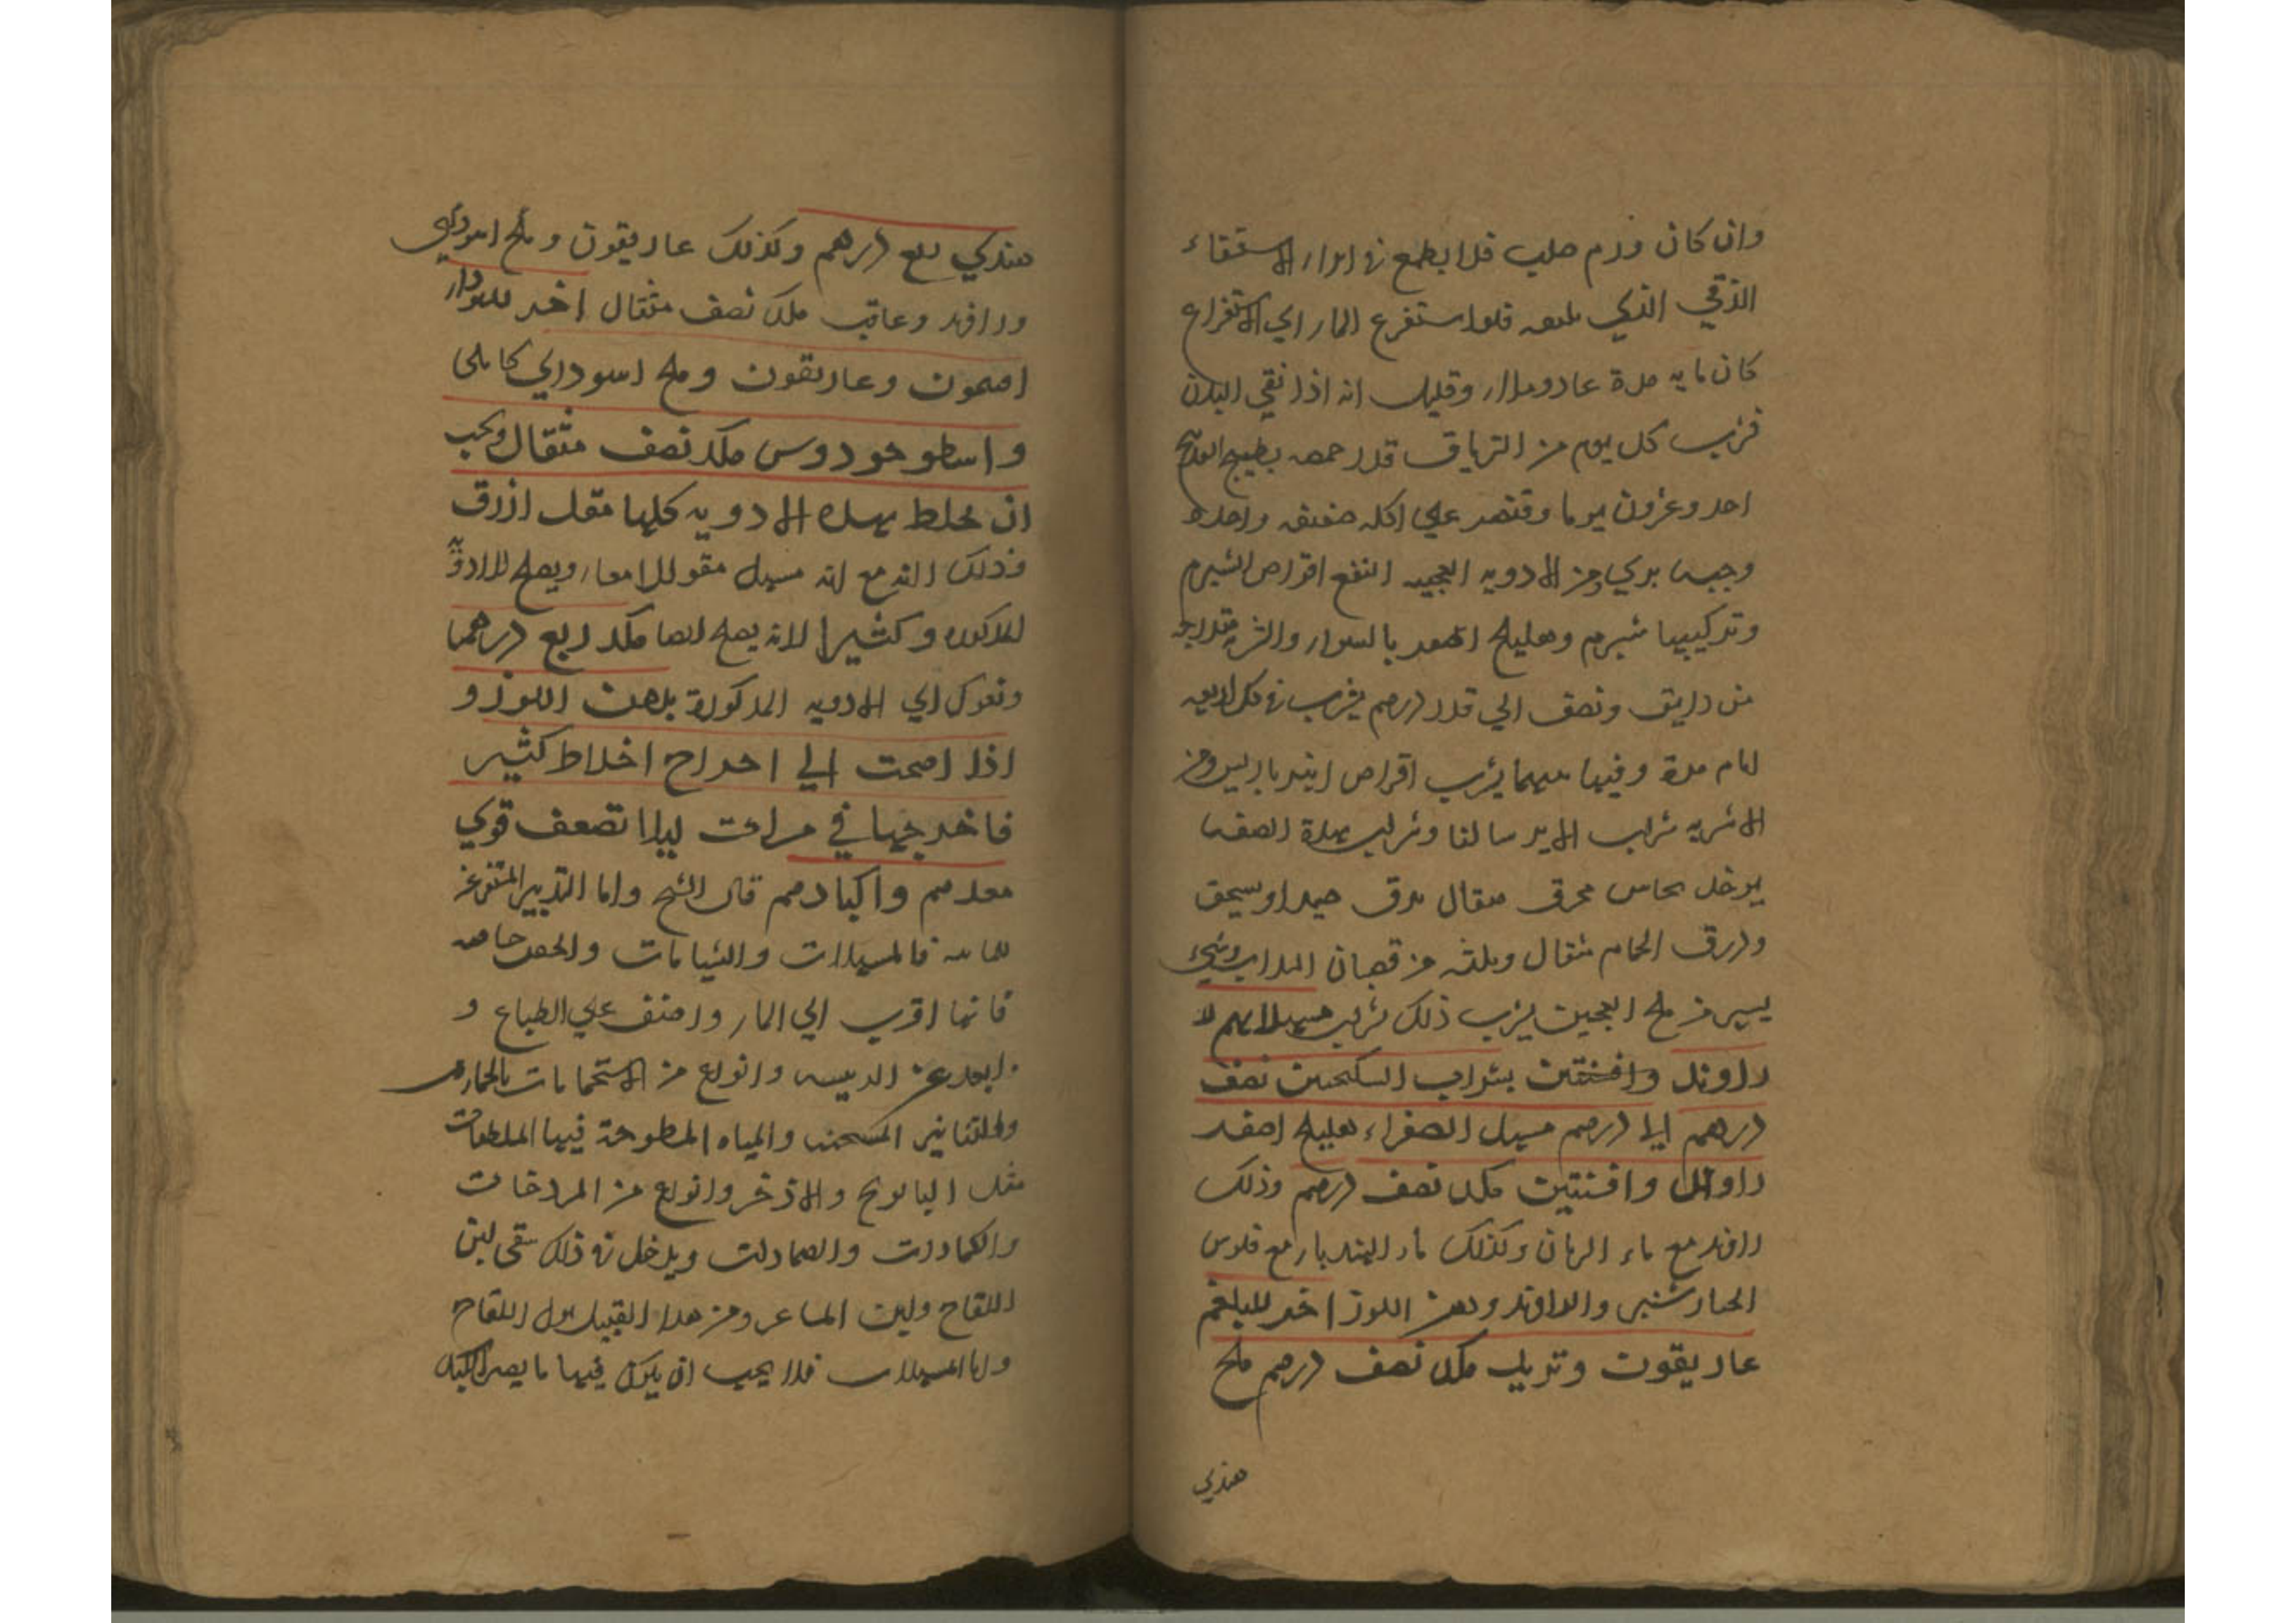 وان كان ورم صلب فلا يطمع في ابراء الاستسقاء
الزقي الذي معه فلو استفرغ الماء اي الاستفراغ
كان مايه مرة عاد وملا وقليل انه اذا نقي البدن
فشرب كل يوم من الترياق قدر حمصه بطبيخ
احد وعشرون يوما وقتصر علي اكله خفيفه واحده
وجبه بري ومن الادويه العجيبه النفع اقراص الشبرم
وتركيبها شبرم وهليلج اصفر بالسواء والشربه
من دانق ونصف الي قدر درهم يشرب في كل اربعه
ايام مرة وفيما بينهما يشرب اقراص انبرباريس ومن
الاشربه شراب الايرسا لنا وشراب بهذة الصفه
يوخذ نحاس محرق مثقال يدق جيدا ويسحق
وذرق الحمام مثقال وثلثه من قضبان السداب وشيء
يسير من ملح العجين يشرب ذلك شراب مسهلا لهم
راوند وافسنتين بشراب السكنجبين نصف
درهم الي درهم مسهل الصفراء هليلج اصفر
راوند وافسنتين مكد نصف درهم وذلك
راوند مع ماء الرمان وكذلك ماء الهندبا مع فلوس
الخيار شنبر والراوند ودهن اللوز اخر للبلغم
غاريقون وتربد مكد نصف درهم ملح
هندي
هندي ربع درهم وكذلك غاريقون وملح اسود اي
وراوند وغافت مكد نصف مثقال اخر للسوداء
افتيمون وغاريقون وملح اسود اي كابلي
واسطوخودوس مكد نصف مثقال ويجب
ان يخلط بهذه الادويه كلها مقل ازرق
وذلك انه مع انه مسهل مقو للامعاء ويصلح للادويه
المذكوره وكثيرا لانه يصلح ايضا مكد ربع درهما
وتعرك اي الادويه المذكورة بدهن اللوز و
اذا احتجت الي اخراج اخلاط كثير
فاخرجها في مرات ليلا تضعف قوي
معدهم واكبادهم قال الشيخ واما التدبير المستفرغ
للمائيه فالمسهلات والشيافات والحقن خاصه
فانها اقرب الي الماء واخف علي الطباع و
ابعد عن الرييسه وانواع من الاستحمامات بالحمامات
والتنانير المسخنه والمياه المطبوخة فيها الملطفات
مثل البابونج والاذخر وانواع من المروخات
والكمادات والضمادات ويدخل في ذلك سقي لبن
اللقاح ولبن الماعز ومن هذا القبيل بول اللقاح
واما المسهلات فلا يجب ان يكون فيها ما يضر الكبد